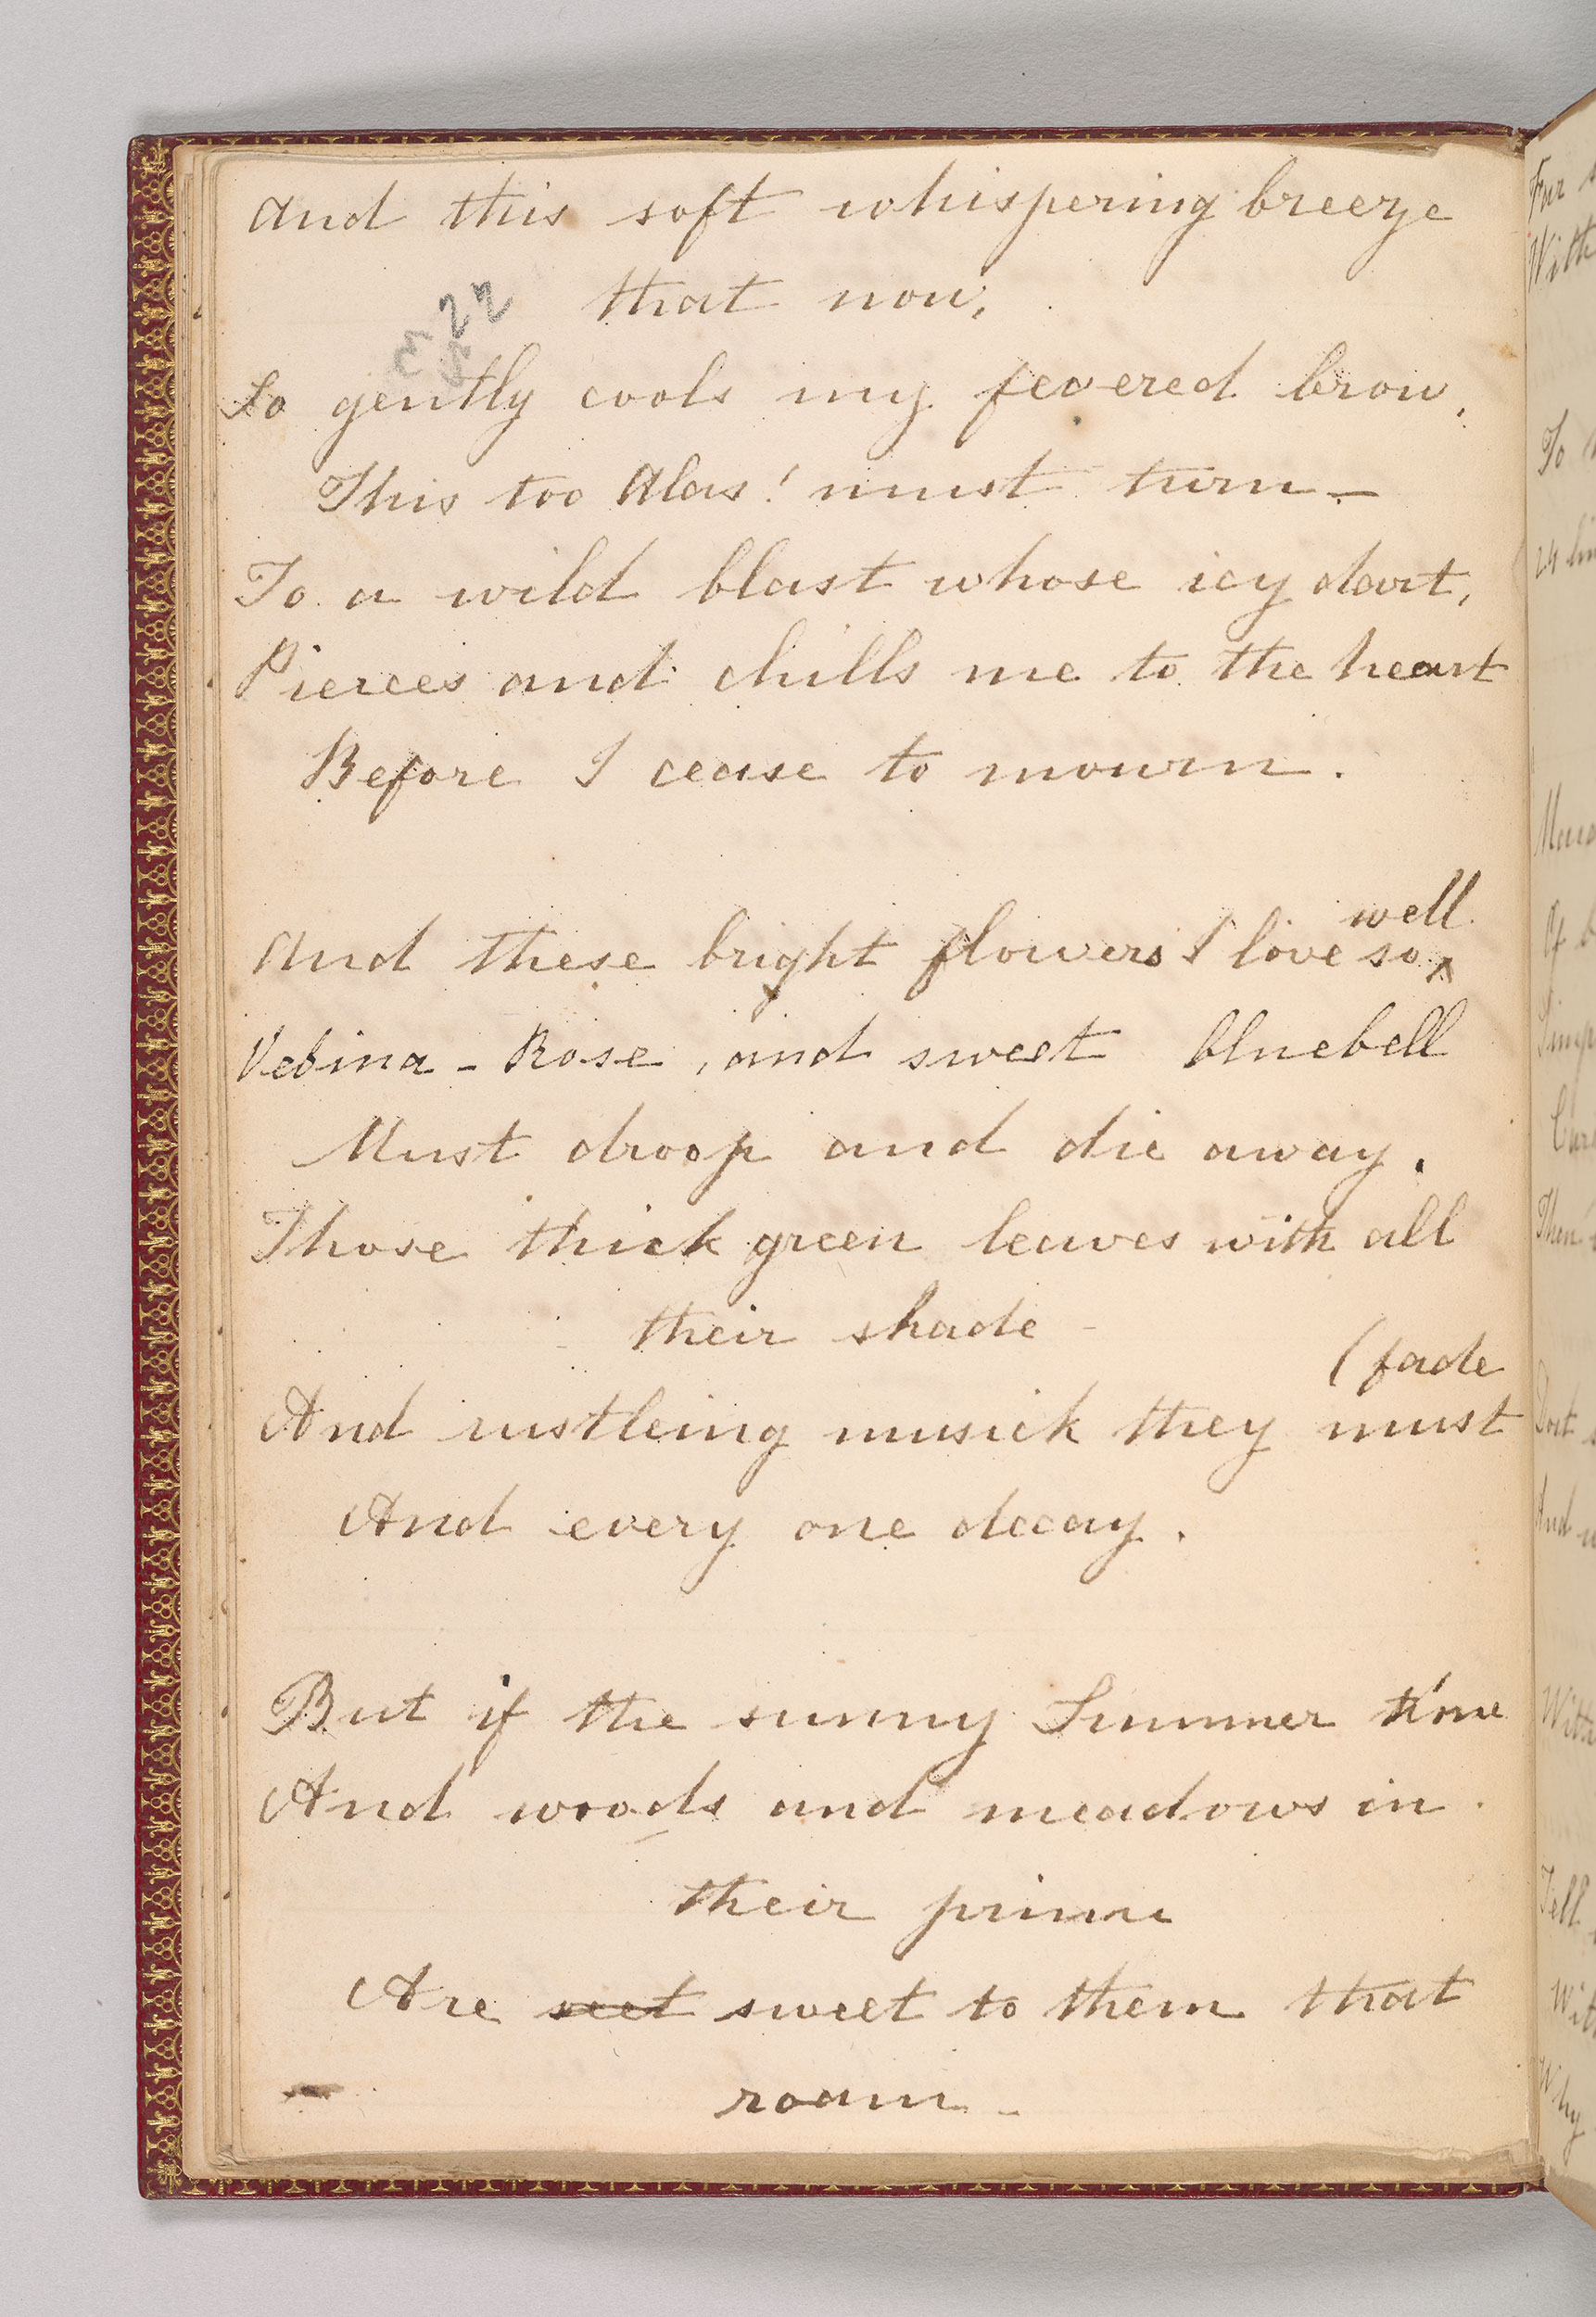 And this soft whispering breeze
that now,
22
So gently cools my fevered brow,
This too Alas! must turn —
To a wild blast whose icy dart,
Pierces and chills me to the heart
Before I cease to mourn.
well
And these bright flowers I love so ^
Vebina - Rose, and sweet bluebell
Must droop and die away.
Those thick green leaves with all
their shade -
(fade
And rustleing musick they must
And every one decay.
But if the sunny Summer time
And woods and meadows in
their prime
Are sweet to them that
roam -
Far
With
To
24
Of
Then
And
Tell
With
Why